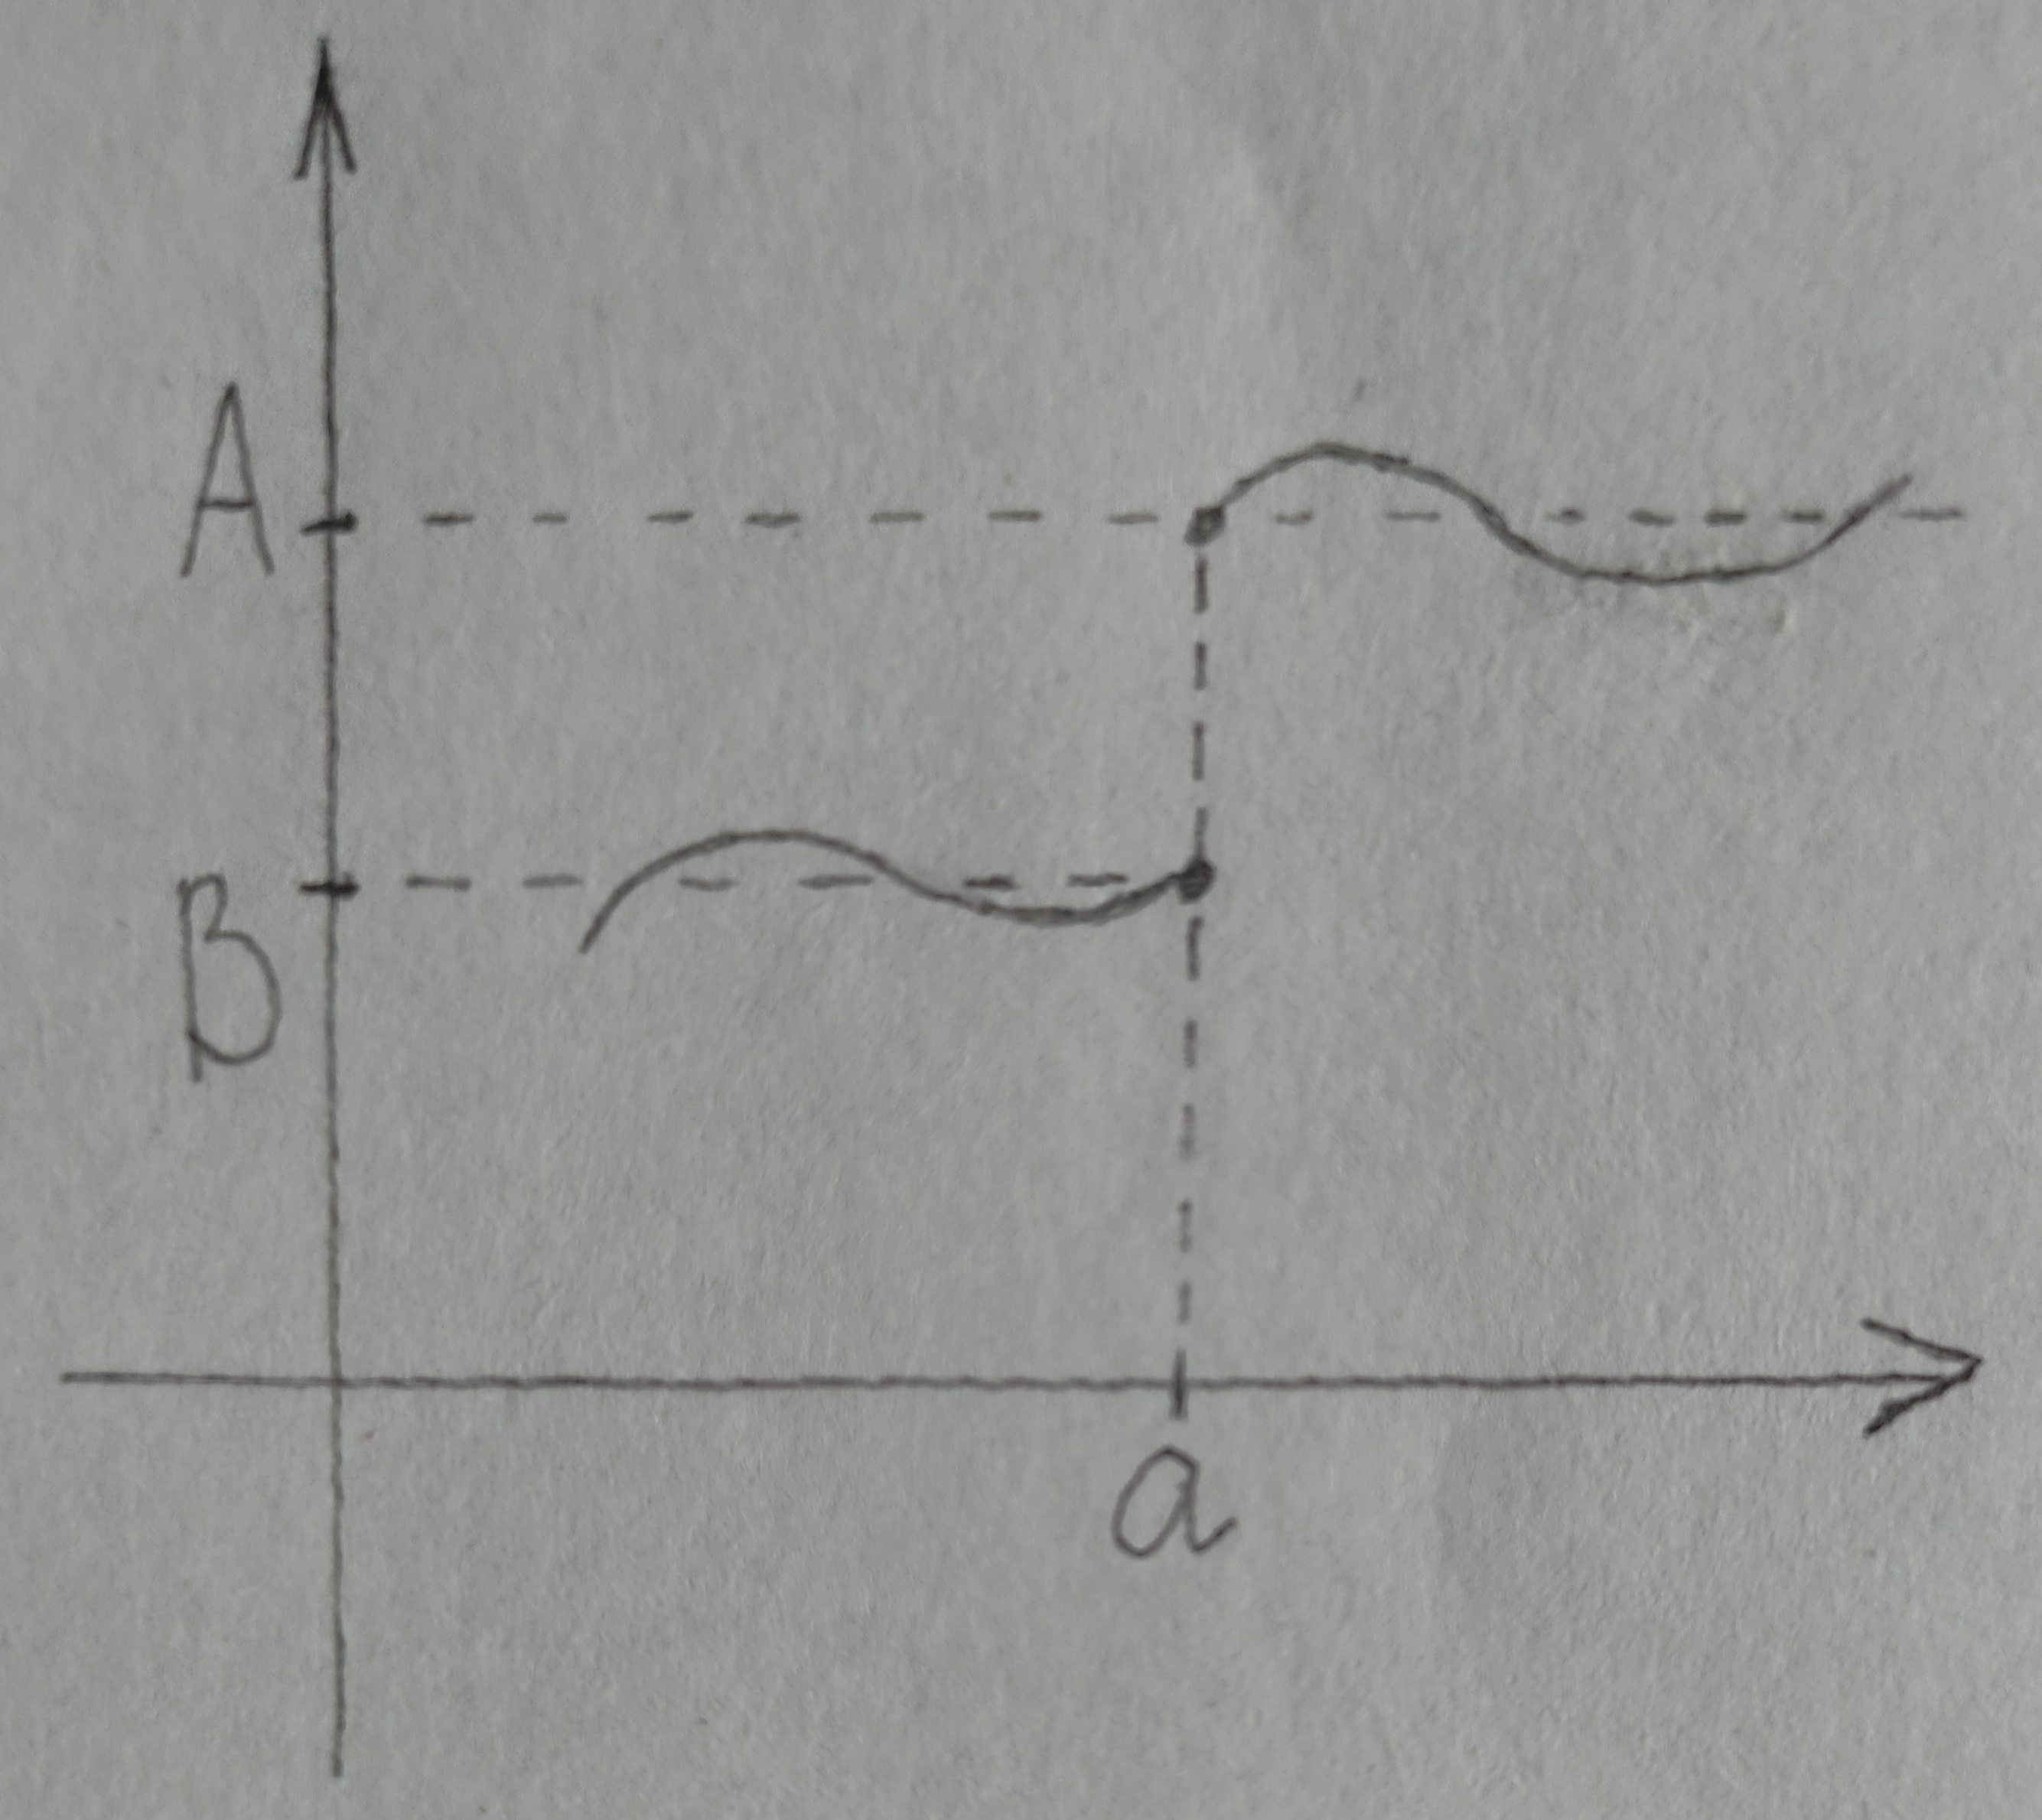 A
B
a